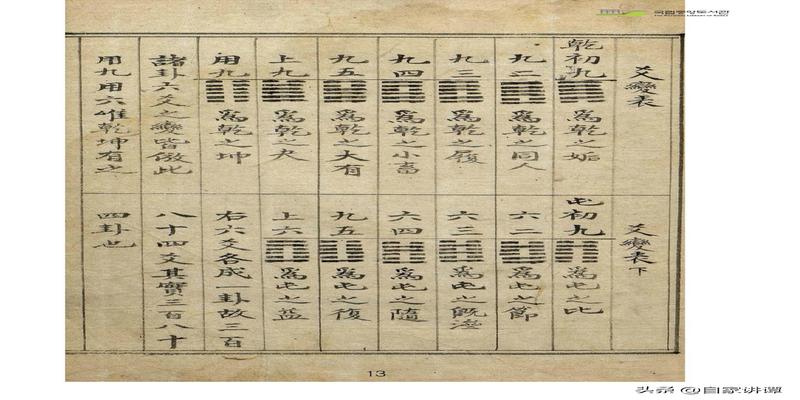 국립중앙도서관
THE NATIONAL LIBRARY OF KOREA
爻變表
乾初九 爲乾之姤
九二 爲乾之同人
九三 爲乾之履
九四 爲乾之小畜
九五 爲乾之大有
上九 爲乾之夬
用九 爲乾之坤
諸卦六爻之變皆倣此
用九用六惟乾坤有之
爻變表下
屯初九 爲屯之比
六二 爲屯之節
六三 爲屯之旣濟
六四 爲屯之隨
九五 爲屯之復
上六 爲屯之益
右六爻各成一卦故三百
八十四爻其實三百八十
四卦也
13
头条 @自家讲谭